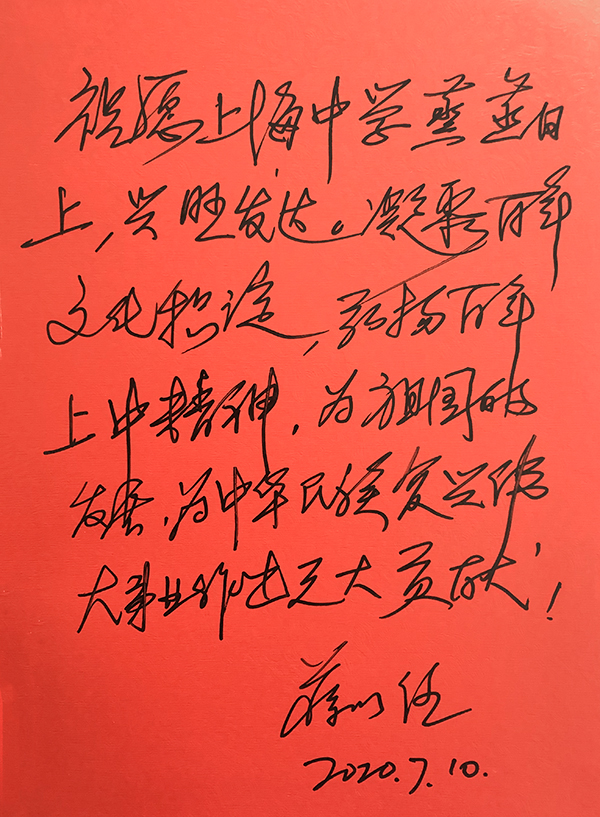 祝愿上海中学蒸蒸日
上，兴旺发达。凝聚百年
文化积淀，弘扬百年
上中精神，为祖国的
发展，为中华民族复兴伟
大事业作出更大贡献！
蔡以任
2020.7.10.